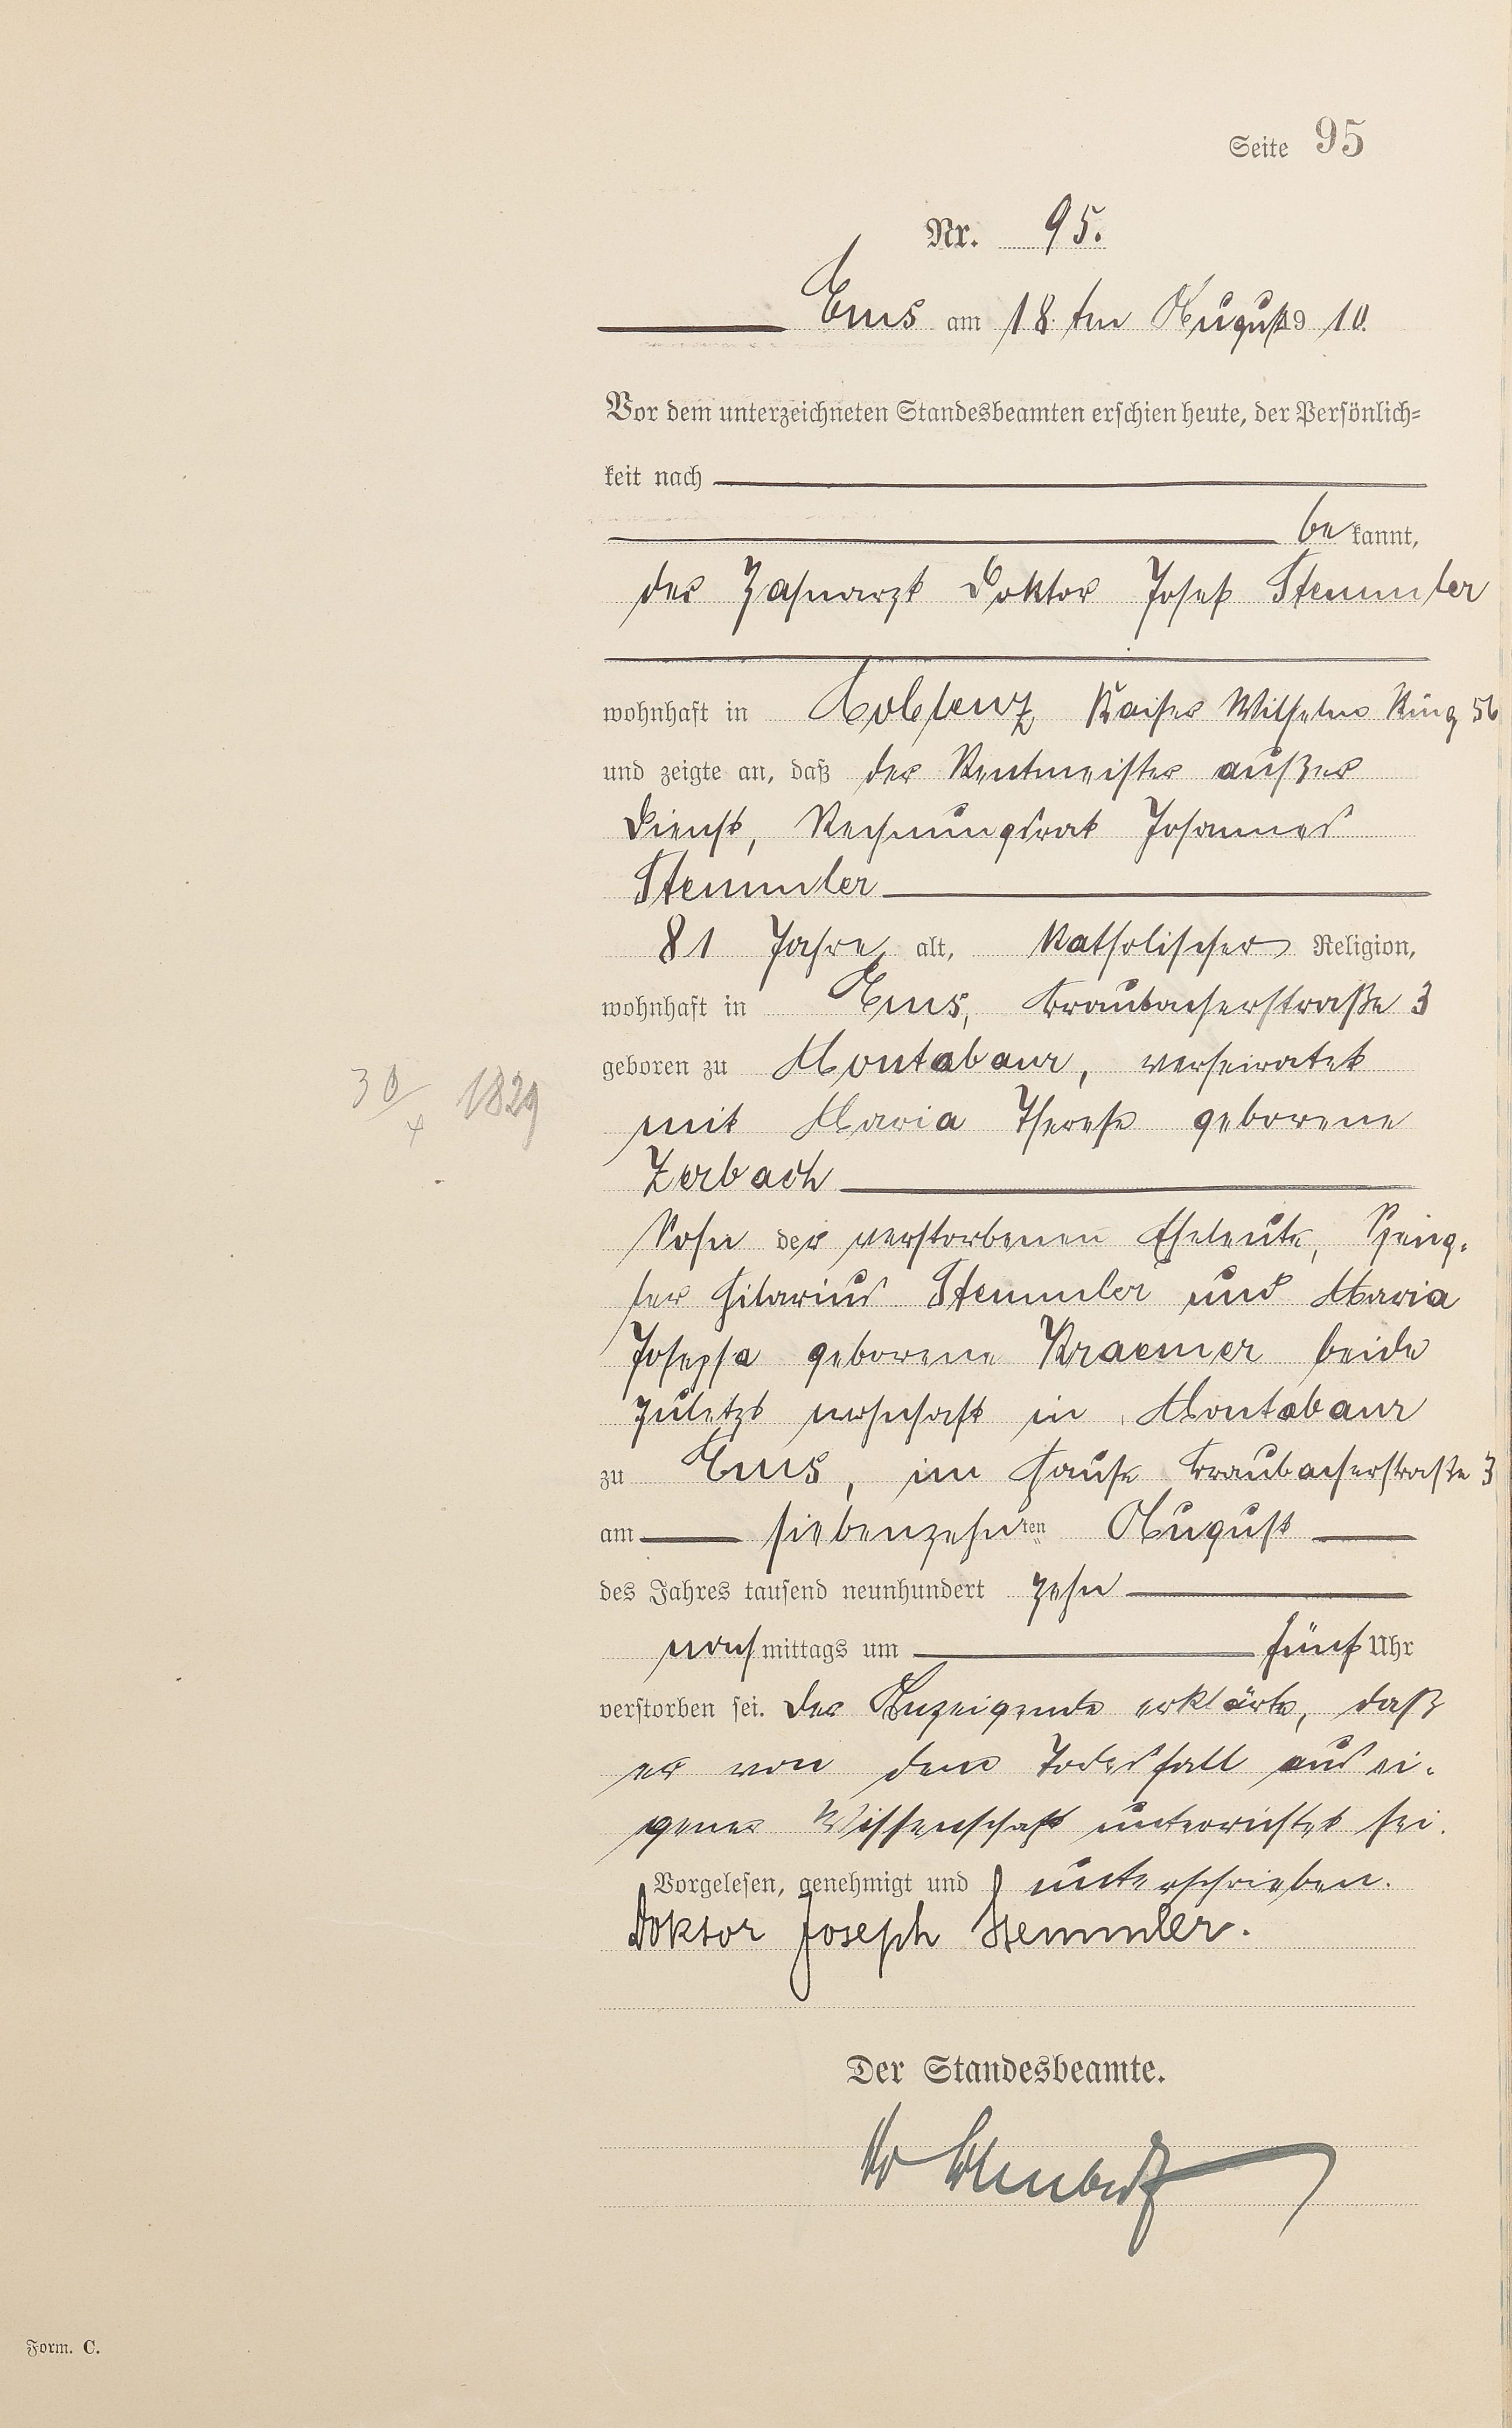 Seite 95
Nr. 95.
Ems am 18. ten August 1910.
Vor dem unterzeichneten Standesbeamten erschien heute, der Persönlich-
keit nach
be kannt,
der Zahnarzt Doktor Josef Stemmler
wohnhaft in Coblenz, Kaiser Wilhelm Ring 56
und zeigte an, daß der Rentmeister außer
Dienst, Rechnungsrat Johannes
Stemmler
81 Jahre alt, katholischer Religion,
wohnhaft in Ems, Braubacherstraße 3
geboren zu Montabaur, verheiratet
30/4 1829
mit Maria Therese geborene
Zerbach
Sohn der verstorbenen Eheleute, Speng-
ler Hilarius Stemmler und Maria
Josepha geborene Kraemer beide
zuletzt wohnhaft in Montabaur
zu Ems, im Hause Braubacherstraße 3
am siebenzehnten August
des Jahres tausend neunhundert zehn
nachmittags um fünf Uhr
verstorben sei. Der Anzeigende erklärte, daß
er von dem Todesfall aus ei-
gener Wissenschaft unterrichtet sei.
Vorgelesen, genehmigt und unterschrieben.
Doktor Joseph Stemmler.
Der Standesbeamte.
Form. C.